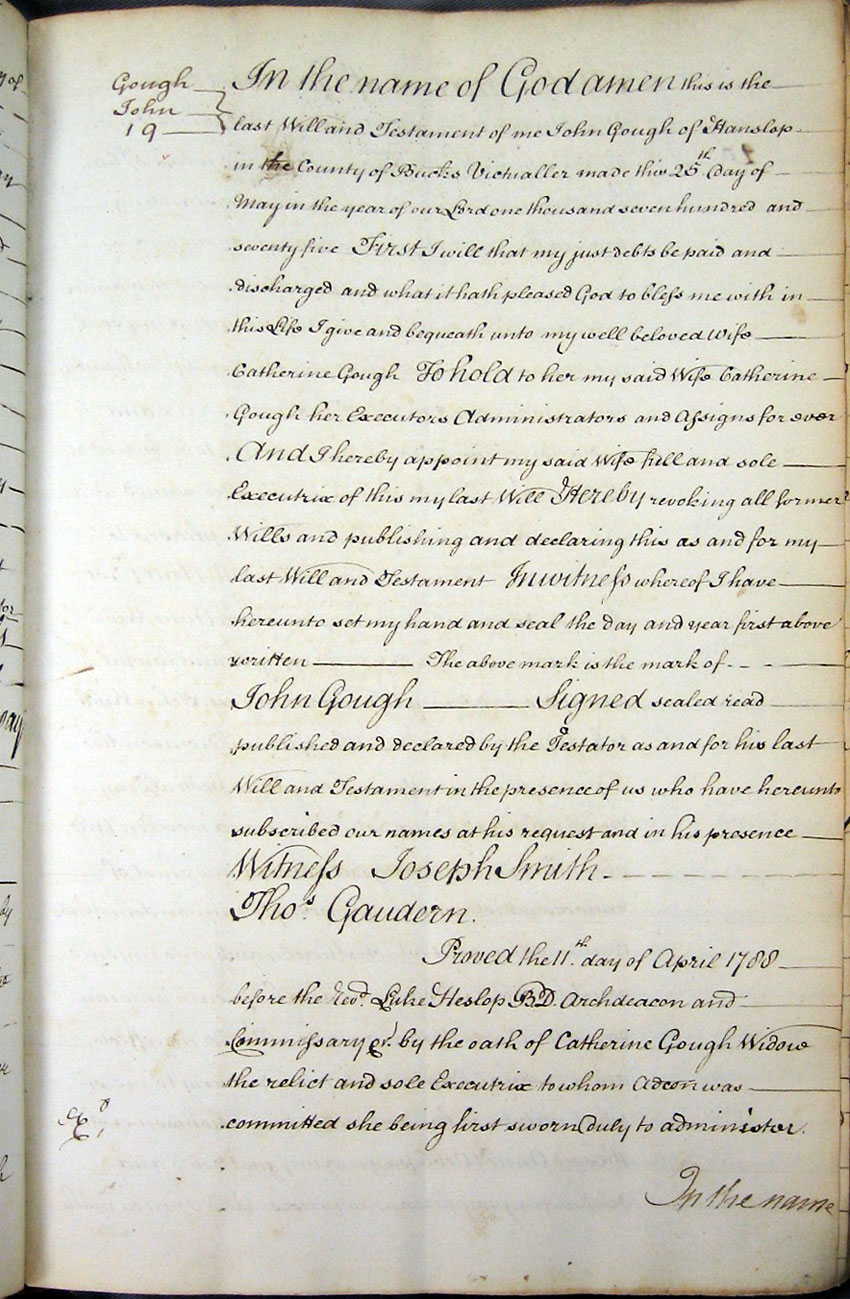 Gough
John
19
In the name of God amen this is the
last Will and Testament of me John Gough of Hanslop
in the County of Bucks Victualler made this 25th Day of
May in the year of our Lord one thousand seven hundred and
seventy five First I will that my just debts be paid and
discharged and what it hath pleased God to bless me with in
this Life I give and bequeath unto my well beloved Wife
Catherine Gough To hold to her my said Wife Catherine
Gough her Executors Administrators and Assigns for ever
And I hereby appoint my said Wife full and sole
Executrix of this my last Will Hereby revoking all former
Wills and publishing and declaring this as and for my
last Will and Testament In witness whereof I have
hereunto set my hand and seal the day and year first above
written — The above mark is the mark of
John Gough — Signed sealed read
published and declared by the Testator as and for his last
Will and Testament in the presence of us who have hereunto
subscribed our names at his request and in his presence
Witness Joseph Smith
Thos. Gaudern.
Proved the 11th day of April 1788
before the Revd. Luke Heslop B.D. Archdeacon and
Commissary &c. by the oath of Catherine Gough Widow
the relict and sole Executrix to whom Adcon was
committed she being first sworn duly to administer.
Exd.
In the name